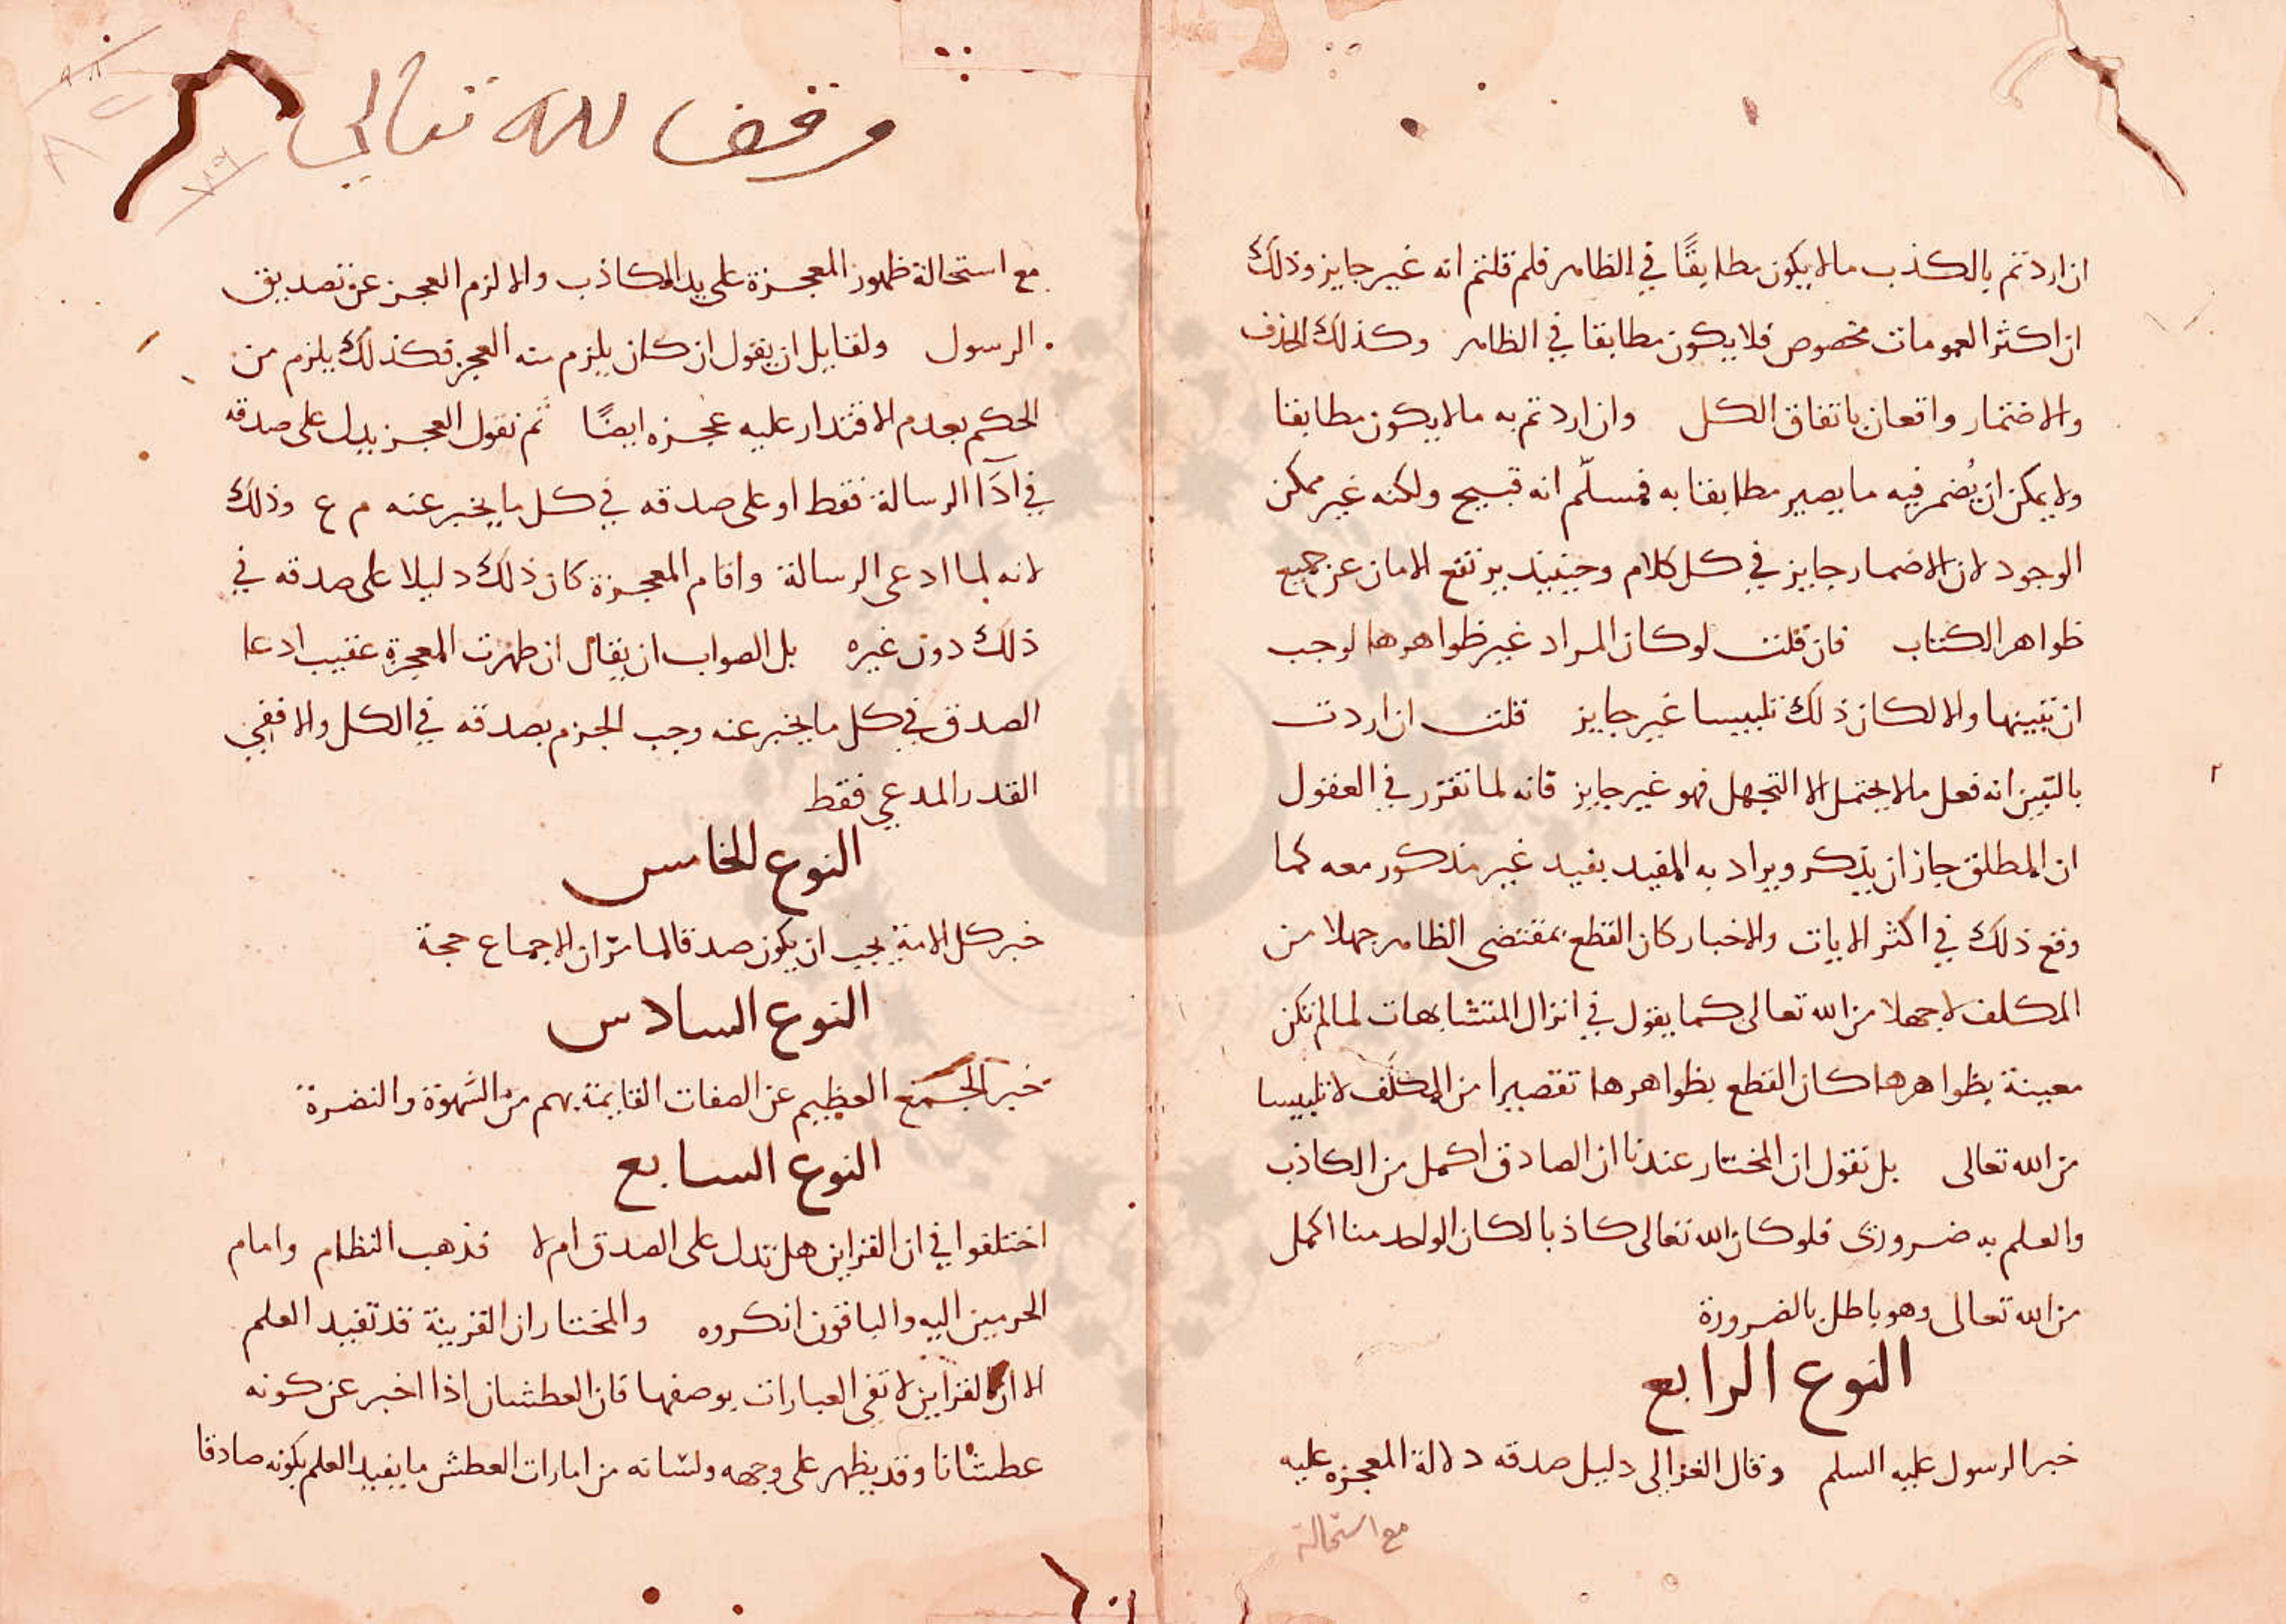 ان اردتم بالكذب مالا يكون مطابقًا في الظاهر فلم قلتم انه غير جايز وذلك
ان اكثر العمومات مخصوص فلا يكون مطابقا في الظاهر وكذلك الحذف
والاضمار واقعان باتفاق الكل وان اردتم به مالا يكون مطابقا
ولا يمكن ان يُضمر فيه ما يصير مطابقا به فمسلّم انه قبيح ولكنه غير ممكن
الوجود لان الاضمار جايز في كل كلام وحينيذ يرتفع الامان عن جميع
ظواهر الكتاب فان قلت لو كان المراد غير ظواهرها لوجب
ان يبينها والا لكان ذلك تلبيسا غير جايز قلت ان اردت
بالتبين انه فعل مالا يحتمل الا التجهل فهو غير جايز فانه لما تقرر في العقول
ان المطلق جاز ان يذكر ويراد به المقيد بقيد غير مذكور معه كما
وقع ذلك في اكثر الايات والاخبار كان القطع بمقتضى الظاهر جهلا من
المكلف لا جهلا من الله تعالى كما يقول في انزال المتشابهات لما لم تكن
معينة بظواهرها كان القطع بظواهرها تقصيرا من المكلف لا تلبيسا
من الله تعالى بل نقول ان المختار عندنا ان الصادق اكمل من الكاذب
والعلم به ضروري فلو كان الله تعالى كاذبا لكان الواحد منا اكمل
من الله تعالى وهو باطل بالضرورة
النوع الرابع
خبر الرسول عليه السلم وقال الغزالي دليل صدقه دلالة المعجزه عليه
مع استحالة
٢
وقف لله تعالى
مع استحالة ظهور المعجزة على يد الكاذب والا لزم العجز عن تصديق
الرسول ولقايل ان يقول ان كان يلزم منه العجز فكذلك يلزم من
الحكم بعدم الاقتدار عليه عجزه ايضًا ثم نقول العجز يدل على صدقه
في ادآ الرسالة فقط او على صدقه في كل ما يخبر عنه م ع وذلك
لانه لما ادعى الرسالة واقام المعجزة كان ذلك دليلا على صدقه في
ذلك دون غيره بل الصواب ان يقال ان ظهرت المعجزة عقيب ادعا
الصدق في كل ما يخبر عنه وجب الجزم بصدقه في الكل والا ففي
القدر المدعي فقط
النوع الخامس
خبر كل الامة يجب ان يكون صدقا لما مرّ ان الاجماع حجة
النوع السادس
خبر الجمع العظيم عن الصفات القايمة بهم من الشهوة والنضرة
النوع السابع
اختلفوا في ان القراين هل تدل على الصدق ام لا فذهب النظام وامام
الحرمين اليه والباقون انكروه والمختار ان القرينة قد تفيد العلم
الا ان القراين لا تفي العبارات بوصفها فان العطشان اذا اخبر عن كونه
عطشانا وقد يظهر على وجهه ولسانه من امارات العطش ما يفيد العلم بكونه صادقا